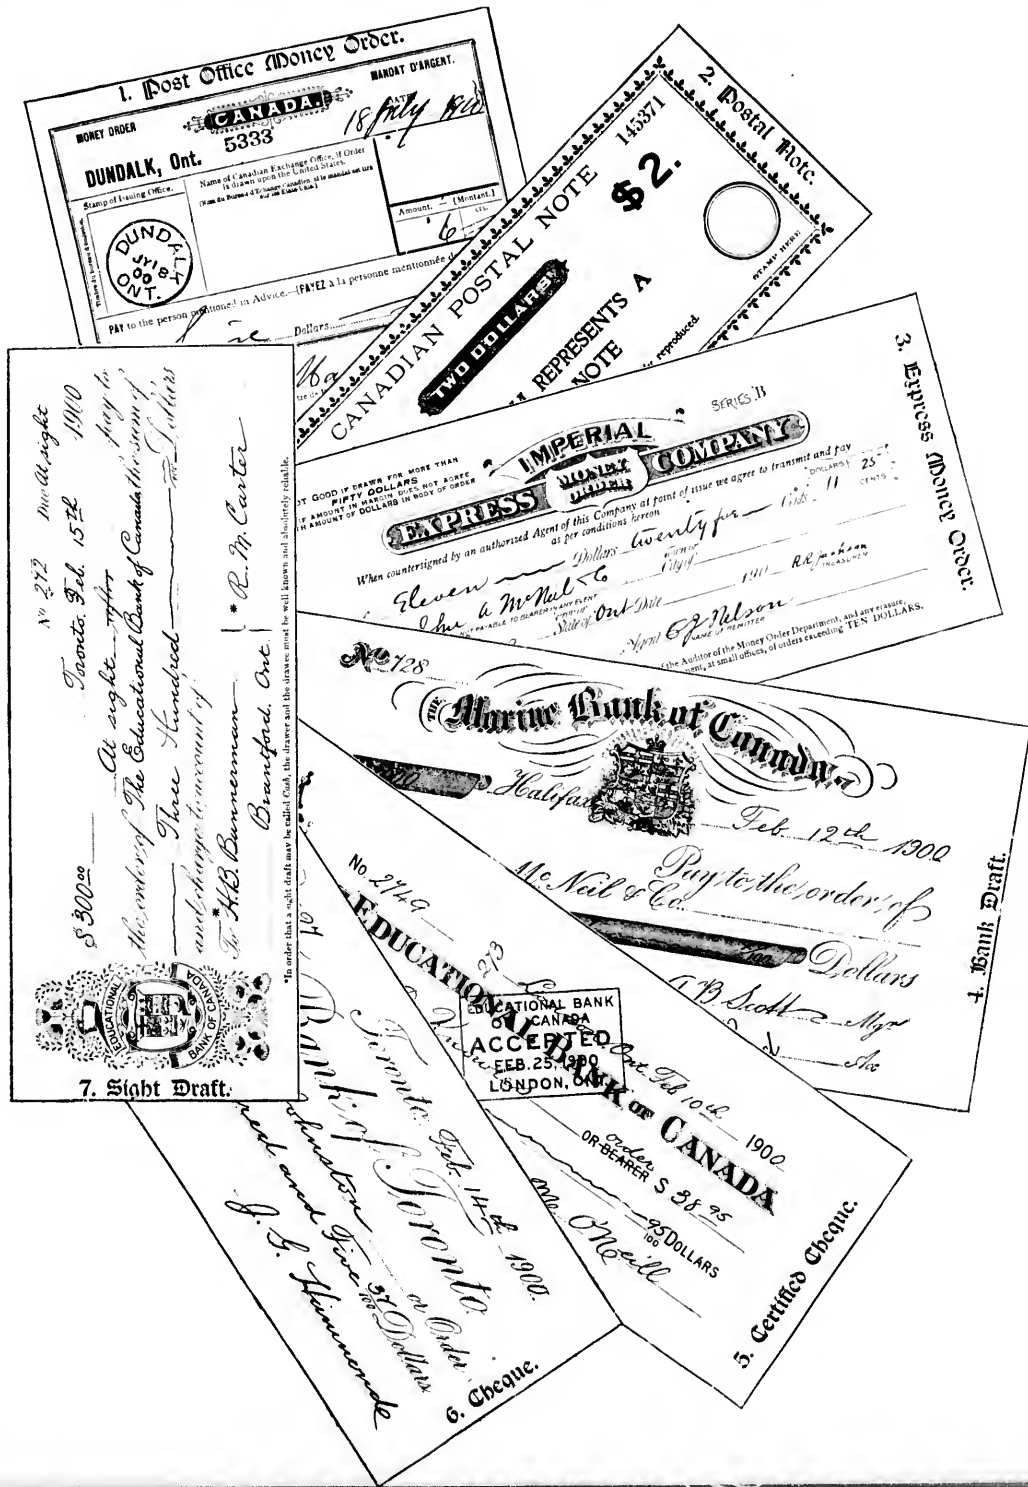 1. Post Office Money Order.
MONEY ORDER
CANADA.
MANDAT D'ARGENT.
5333
DATE
18 July 1900
DUNDALK, Ont.
Stamp of Issuing Office.
Name of Canadian Exchange Office, if Order
is drawn upon the United States.
Amount. — (Montant.)
DUNDALK
JY 18
00
ONT.
PAY to the person mentioned in Advice.—(PAYEZ à la personne mentionnée
Dollars
2. Postal Note.
145371
CANADIAN POSTAL NOTE
$2.
TWO DOLLARS
REPRESENTS A
NOTE
reproduced.
STAMP HERE
3. Express Money Order.
SERIES B
OT GOOD IF DRAWN FOR MORE THAN
FIFTY DOLLARS
IF AMOUNT IN MARGIN DOES NOT AGREE
TH AMOUNT OF DOLLARS IN BODY OF ORDER
IMPERIAL
EXPRESS MONEY ORDER COMPANY
When countersigned by an authorized Agent of this Company at point of issue we agree to transmit and pay
as per conditions hereon
DOLLARS 25
11 CENTS
Eleven Dollars twenty five Cents
A McNeil & Co
NOT PAYABLE TO BEARER IN ANY EVENT
Town or
City of
State of Ont Date 190
R.R. Jackson
TREASURER
Agent E J Nelson
NAME OF REMITTER
the Auditor of the Money Order Department, and any erasure,
ent, at small offices, of orders exceeding TEN DOLLARS.
4. Bank Draft.
No. 728
THE Marine Bank of Canada
Halifax Feb. 12th 1900
Pay to the order of
McNeil & Co.
100 Dollars
A B Scott Mgr
Ac
5. Certified Cheque.
No. 2749
EDUCATIONAL BANK OF CANADA
273
Ont. Feb 10th 1900
EDUCATIONAL BANK
OF CANADA
ACCEPTED
FEB. 25, 1900
LONDON, ONT
order
OR BEARER $ 38 95
95/100 DOLLARS
O'Neill
6. Cheque.
Toronto, Feb. 14th 1900.
Bank of Toronto
ohnston or Order
red and Five 37/100 Dollars
J. G. Hammond
7. Sight Draft.
EDUCATIONAL
BANK OF CANADA
No 272 Due At sight
$300.00 Toronto, Feb. 15th 1900
At sight after pay to
the order of The Educational Bank of Canada the sum of
Three Hundred Dollars
and charge to account of
To *H.B. Bunnerman *R. M. Carter
Brantford. Ont
*In order that a sight draft may be called Cash, the drawer and the drawee must be well known and absolutely reliable.